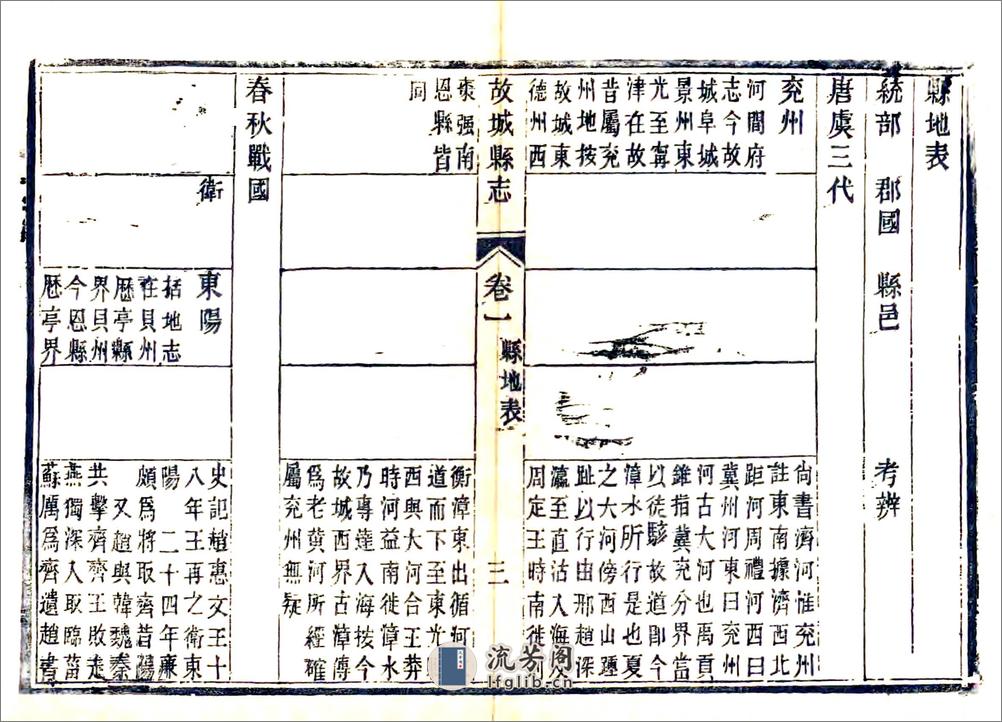 縣地表
統部 郡國 縣邑 考辨
唐虞三代
兖州
河間府
志今故
城阜城
景州東
光至寗
津在故
昔屬兖
州地按
故城東
德州西
尚書濟河惟兖州
註東南據濟西北
距河周禮河西曰
冀州河東曰兖州
河古大河也禹貢
雖指冀兖分界當
以徒駭故道卽今
漳水所行是也夏
之大河傍西山薄
趾以行由邢趙深
瀛至直沽入海
周定王時南徙
故城縣志
卷一
縣地表
三
棗强南
恩縣皆
同
衡漳東出循河
道而下至東光
西與大河合王莽
時河益南徙漳水
乃專達入海按今
故城西界古漳傳
爲老黄河所經確
屬兖州無疑
春秋戰國
衛
東陽
括地志
在貝州
歷亭縣
界貝州
今恩縣
歷亭界
史記趙惠文王十
八年王再之衛東
陽 二十四年廉
頗爲將取齊昔陽
又趙與韓魏秦
共擊齊齊王敗走
燕獨深入取臨菑
蘇厲爲齊遺趙書
流芳阁
lfglib.cn